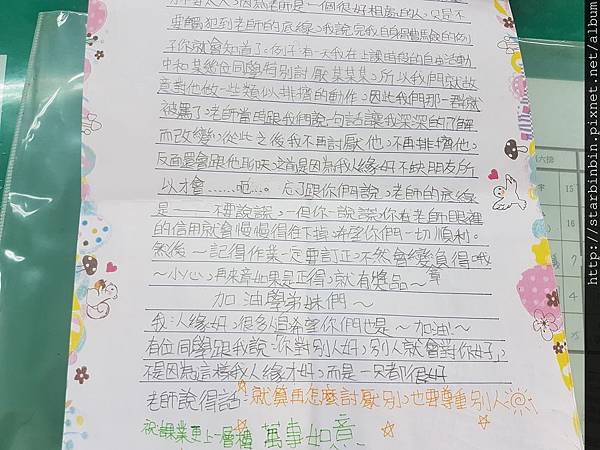 因為老師是一個很好相處的人,只是不
要觸犯到老師的底線,我說完我自身體驗的例
子你就會知道了。例子:有一天我在上課時段的自由活動
中和某幾位同學特別討厭某某某,所以我們就故
意對他做一些類似排擠的動作,因此我們那一群就
被罵了,老師當時跟我們說一句話讓我深深的了解
而改變,從此之後我不再討厭他,不再排擠他,
反而還會跟他聊天,這並不是因為我人緣好不缺朋友所
以才會......呃...。忘了跟你們說,老師的底線
是——不要說謊,一但你說謊,你在老師眼裡
的信用就會慢慢得往下掉,希望你們一切順利。
然後~記得作業一定要訂正,不然會變負得哦
~小心,再來章如果是正得,就有獎品~ 章
加油學弟妹們~
我人緣好,很多人都希望你們也是~加油!~
有位同學跟我說:你對別人好,別人就會對你好,
不是因為這樣我人緣才好,而是一只都很好
老師說得話:就算再怎麼討厭別人,也要尊重別人
祝課業更上一層樓 萬事如意
http://starbinbin.pixnet.net/album